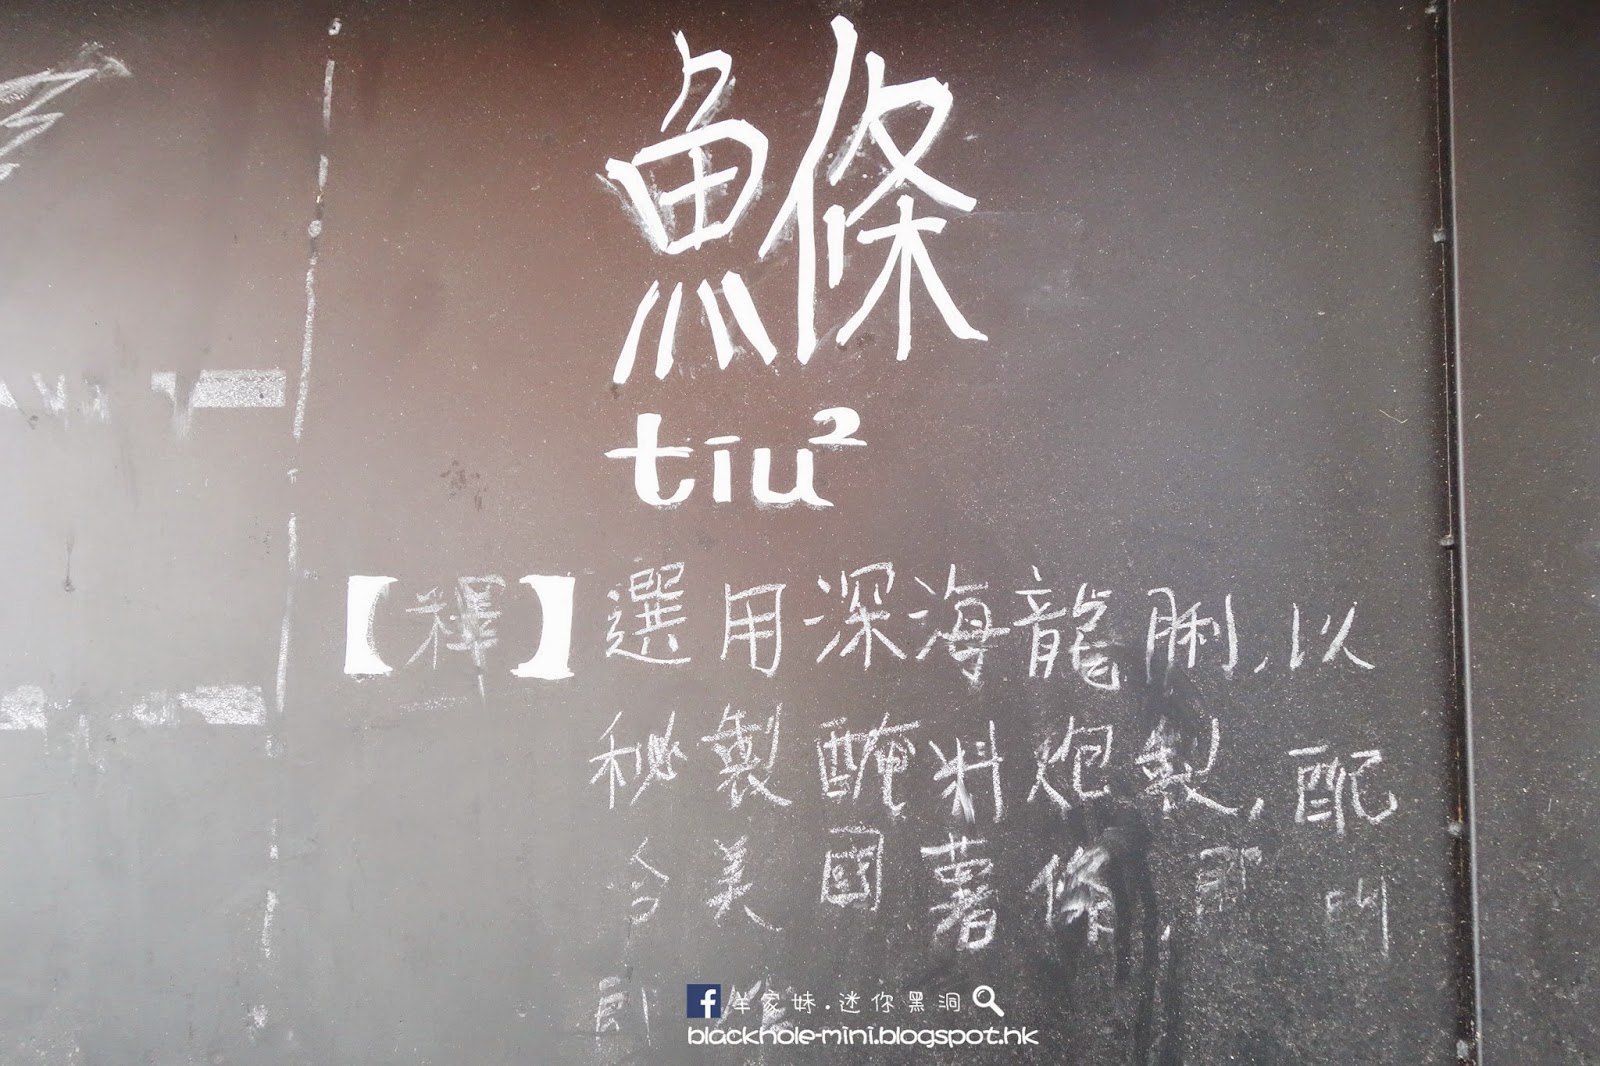 鰷
tiu²
【釋】選用深海龍脷,以
秘製醃料炮製,配
合美國薯條,叫
羊家妹.迷你黑洞
blackhole-mini.blogspot.hk